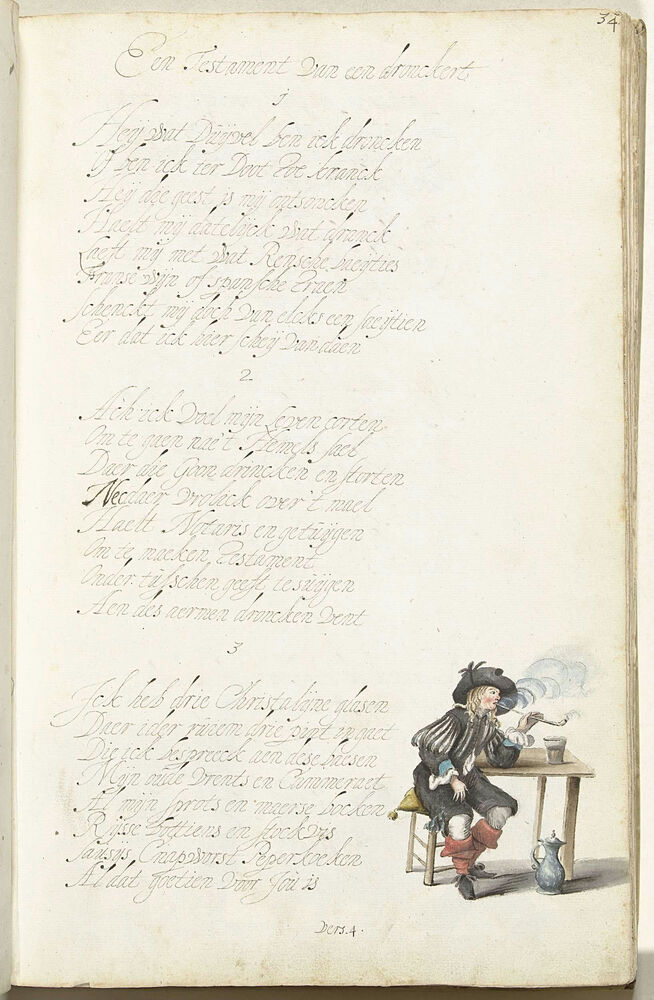 34
Een Testament van een dronckert
1
Heij wat Duijvel ben ick droncken
Of ben ick ter Doot zoe kranck
Heij doe geest is mij ontsoncken
Haelt mij datelijck wat dranck
Laeft mij met wat Rensche
Franse wijn of spansche
schenckt mij doch van elcks een
Eer dat ick hier scheij van daen
2
Ach ick voel mijn Leven corten
Om te gaen nae't Hemels sael
Daer die Goon droncken en storten
Nectaer vrolick over 't mael
Haelt Notaris en getuijgen
Om te maeken Testament
Onder tusschen geeft te suijgen
Aen des aermen droncken vent
3
Ick heb drie Christalijne glasen
Daer ider ruiem drie pint in gaet
Die ick bespreeck aen dese baesen
Mijn oude vrents en Cammeraet
Al mijn sprots en maerse bocken
Rijsse en stockvis
sausijs Cnapworst Peperkoeken
Al dat goetien voor Jou is
Vers. 4.